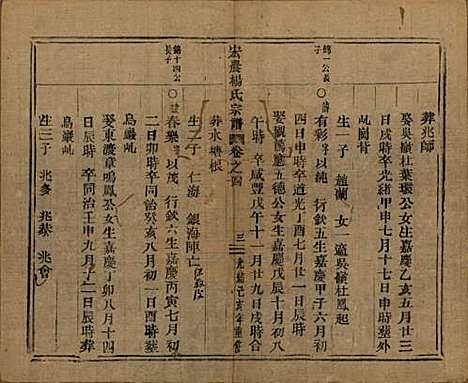 葬兆師
娶吳嶺杜葉環公女生嘉慶乙亥五月廿三
日戌時卒光緒甲申七月十七日申時塋外
屺岡背
生一子 趙蘭 女 適吳嶺杜鳳起
錦一公長子
有彩 以純 行欽五生嘉慶甲子六月初
四日申時卒道光丁酉七月廿一日辰時
娶劉陽廳五德公女生嘉慶戊辰十月初八
午時 卒咸豐戊午十一月廿九日戌時合
葬水塘根
生二子 仁海 銀海陣亡
宏農楊氏宗譜 卷之四 三 光緒己亥年重修
錦十四公長子
春樂 以茂 行欽六生嘉慶丙寅七月初
二日卯時卒同治癸亥八月初一日巳時塋
烏巖屺
娶東渡章鳴鳳公女生嘉慶丁卯八月十四
日辰時 卒同治壬申九月 日辰時 葬
烏巖屺
生三子 兆多 兆恭 兆會